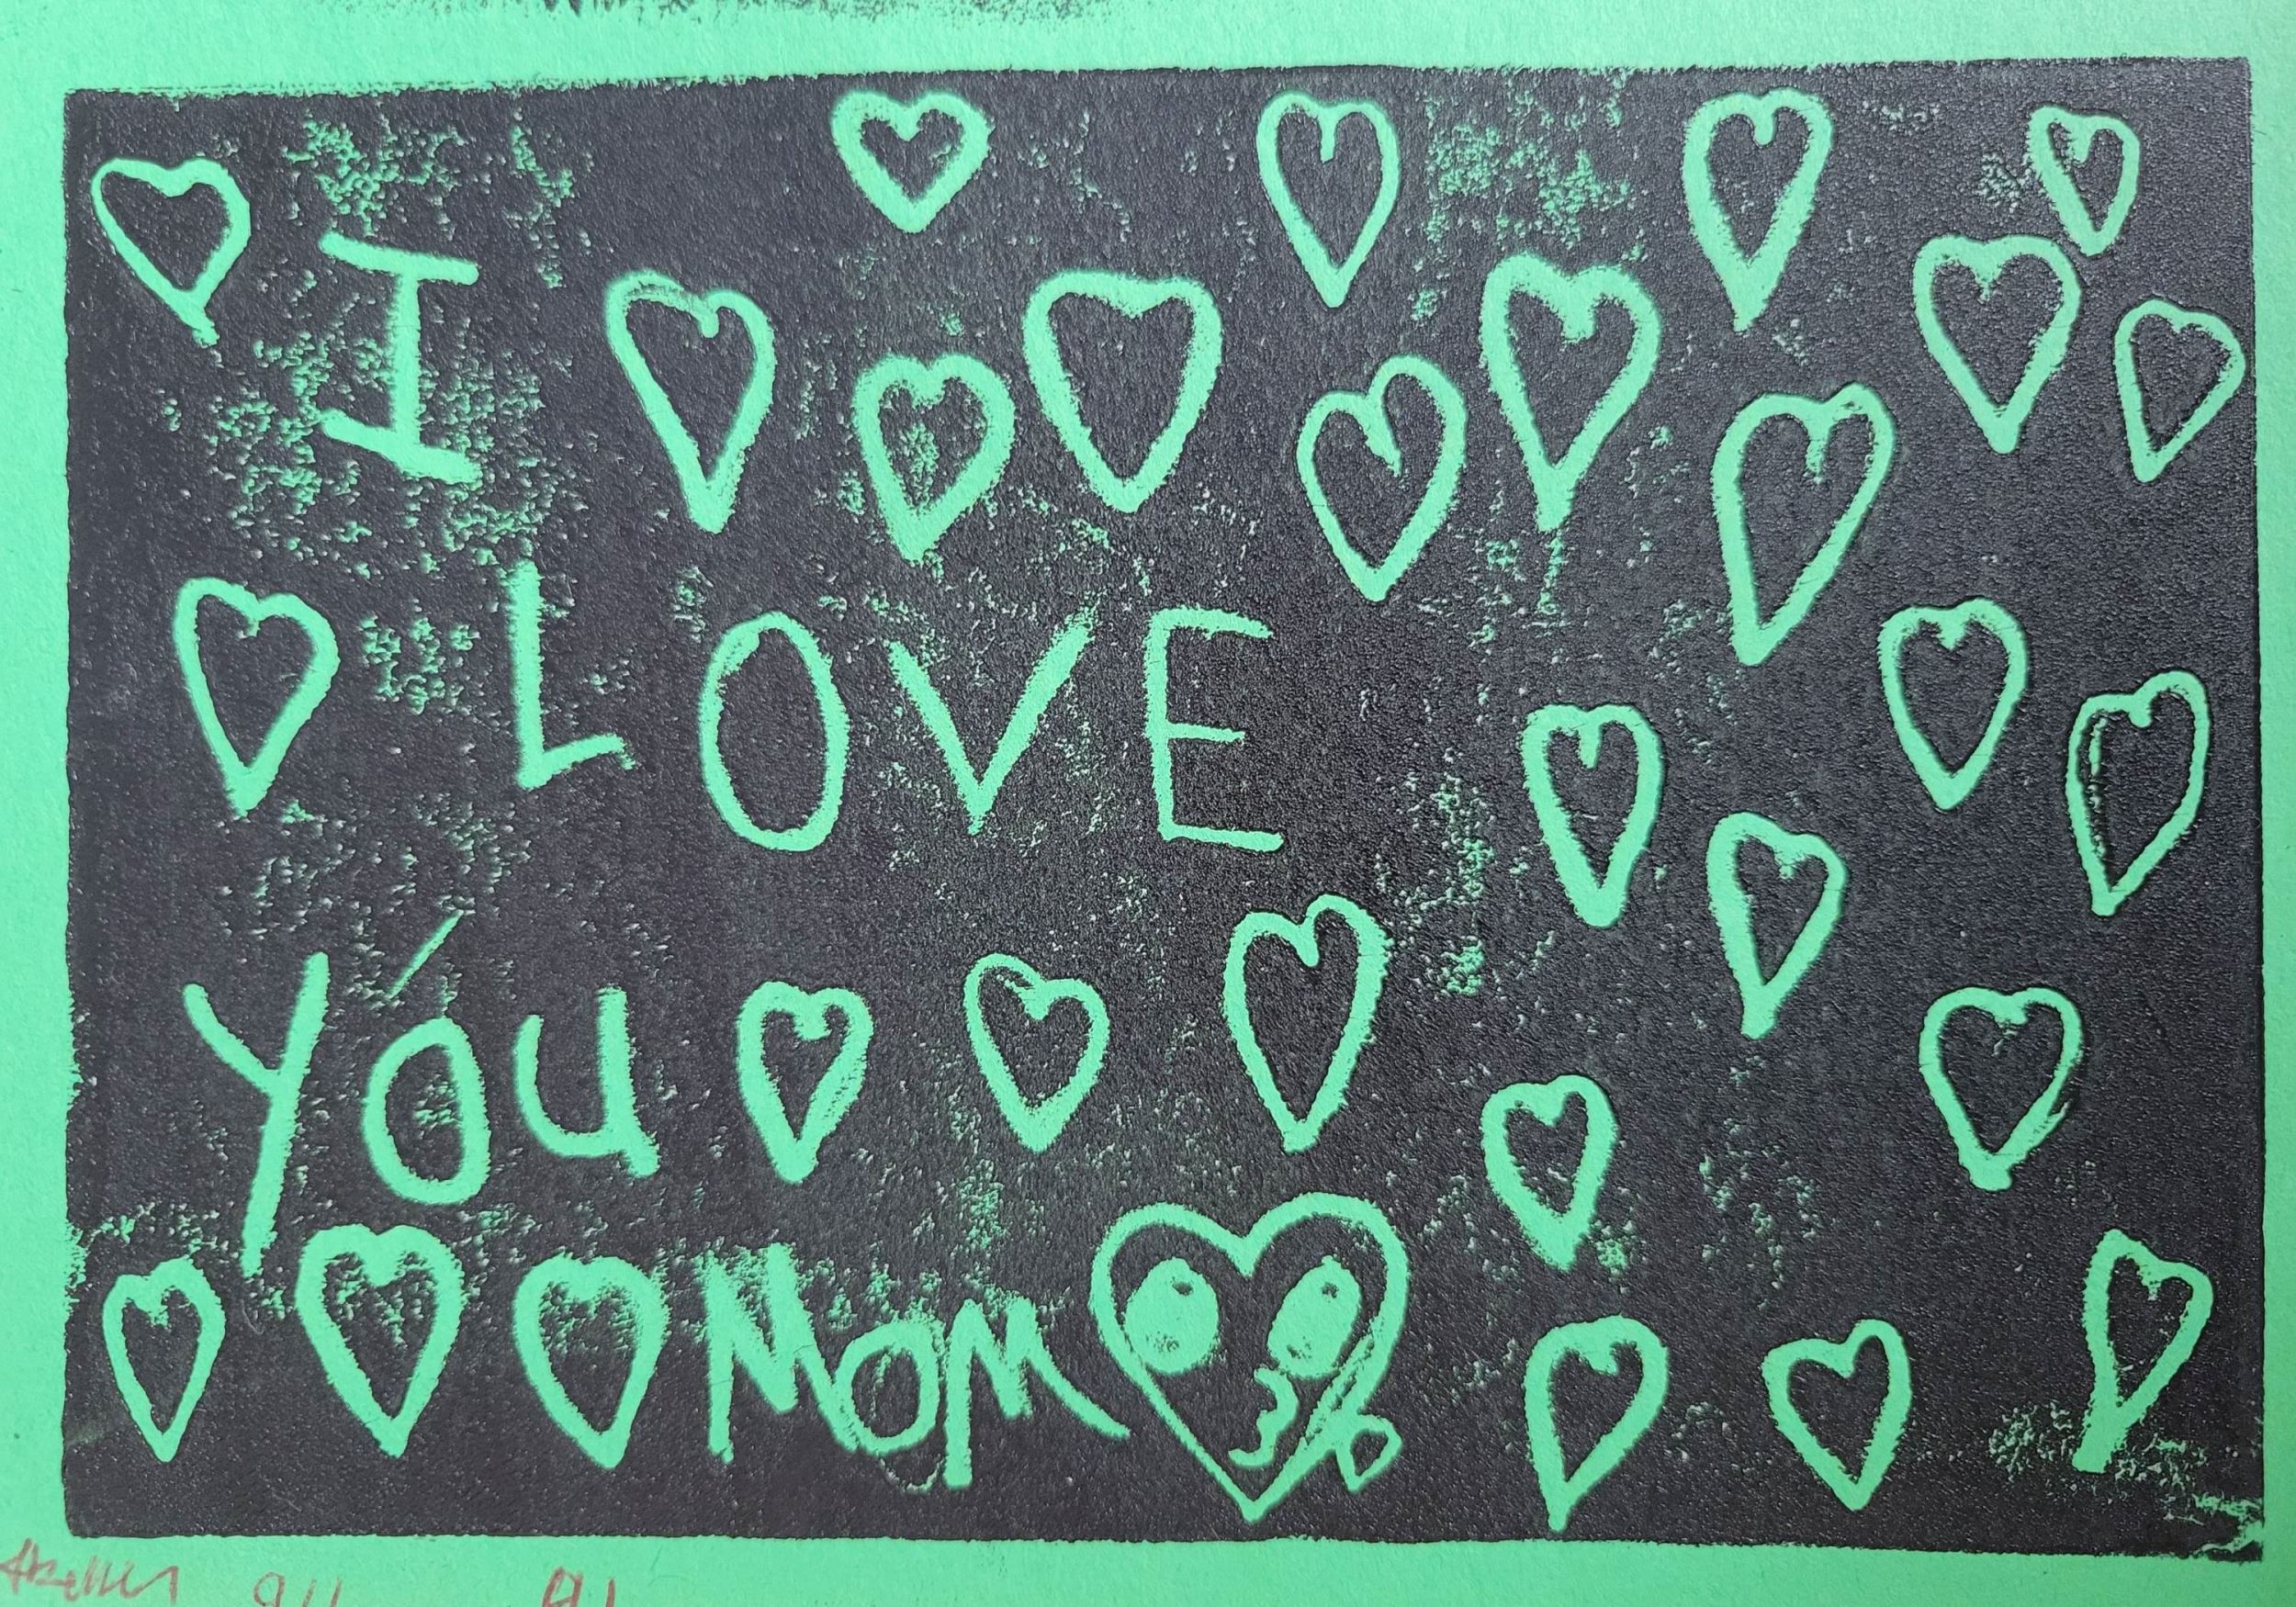 I
LOVE
YOU
MOM